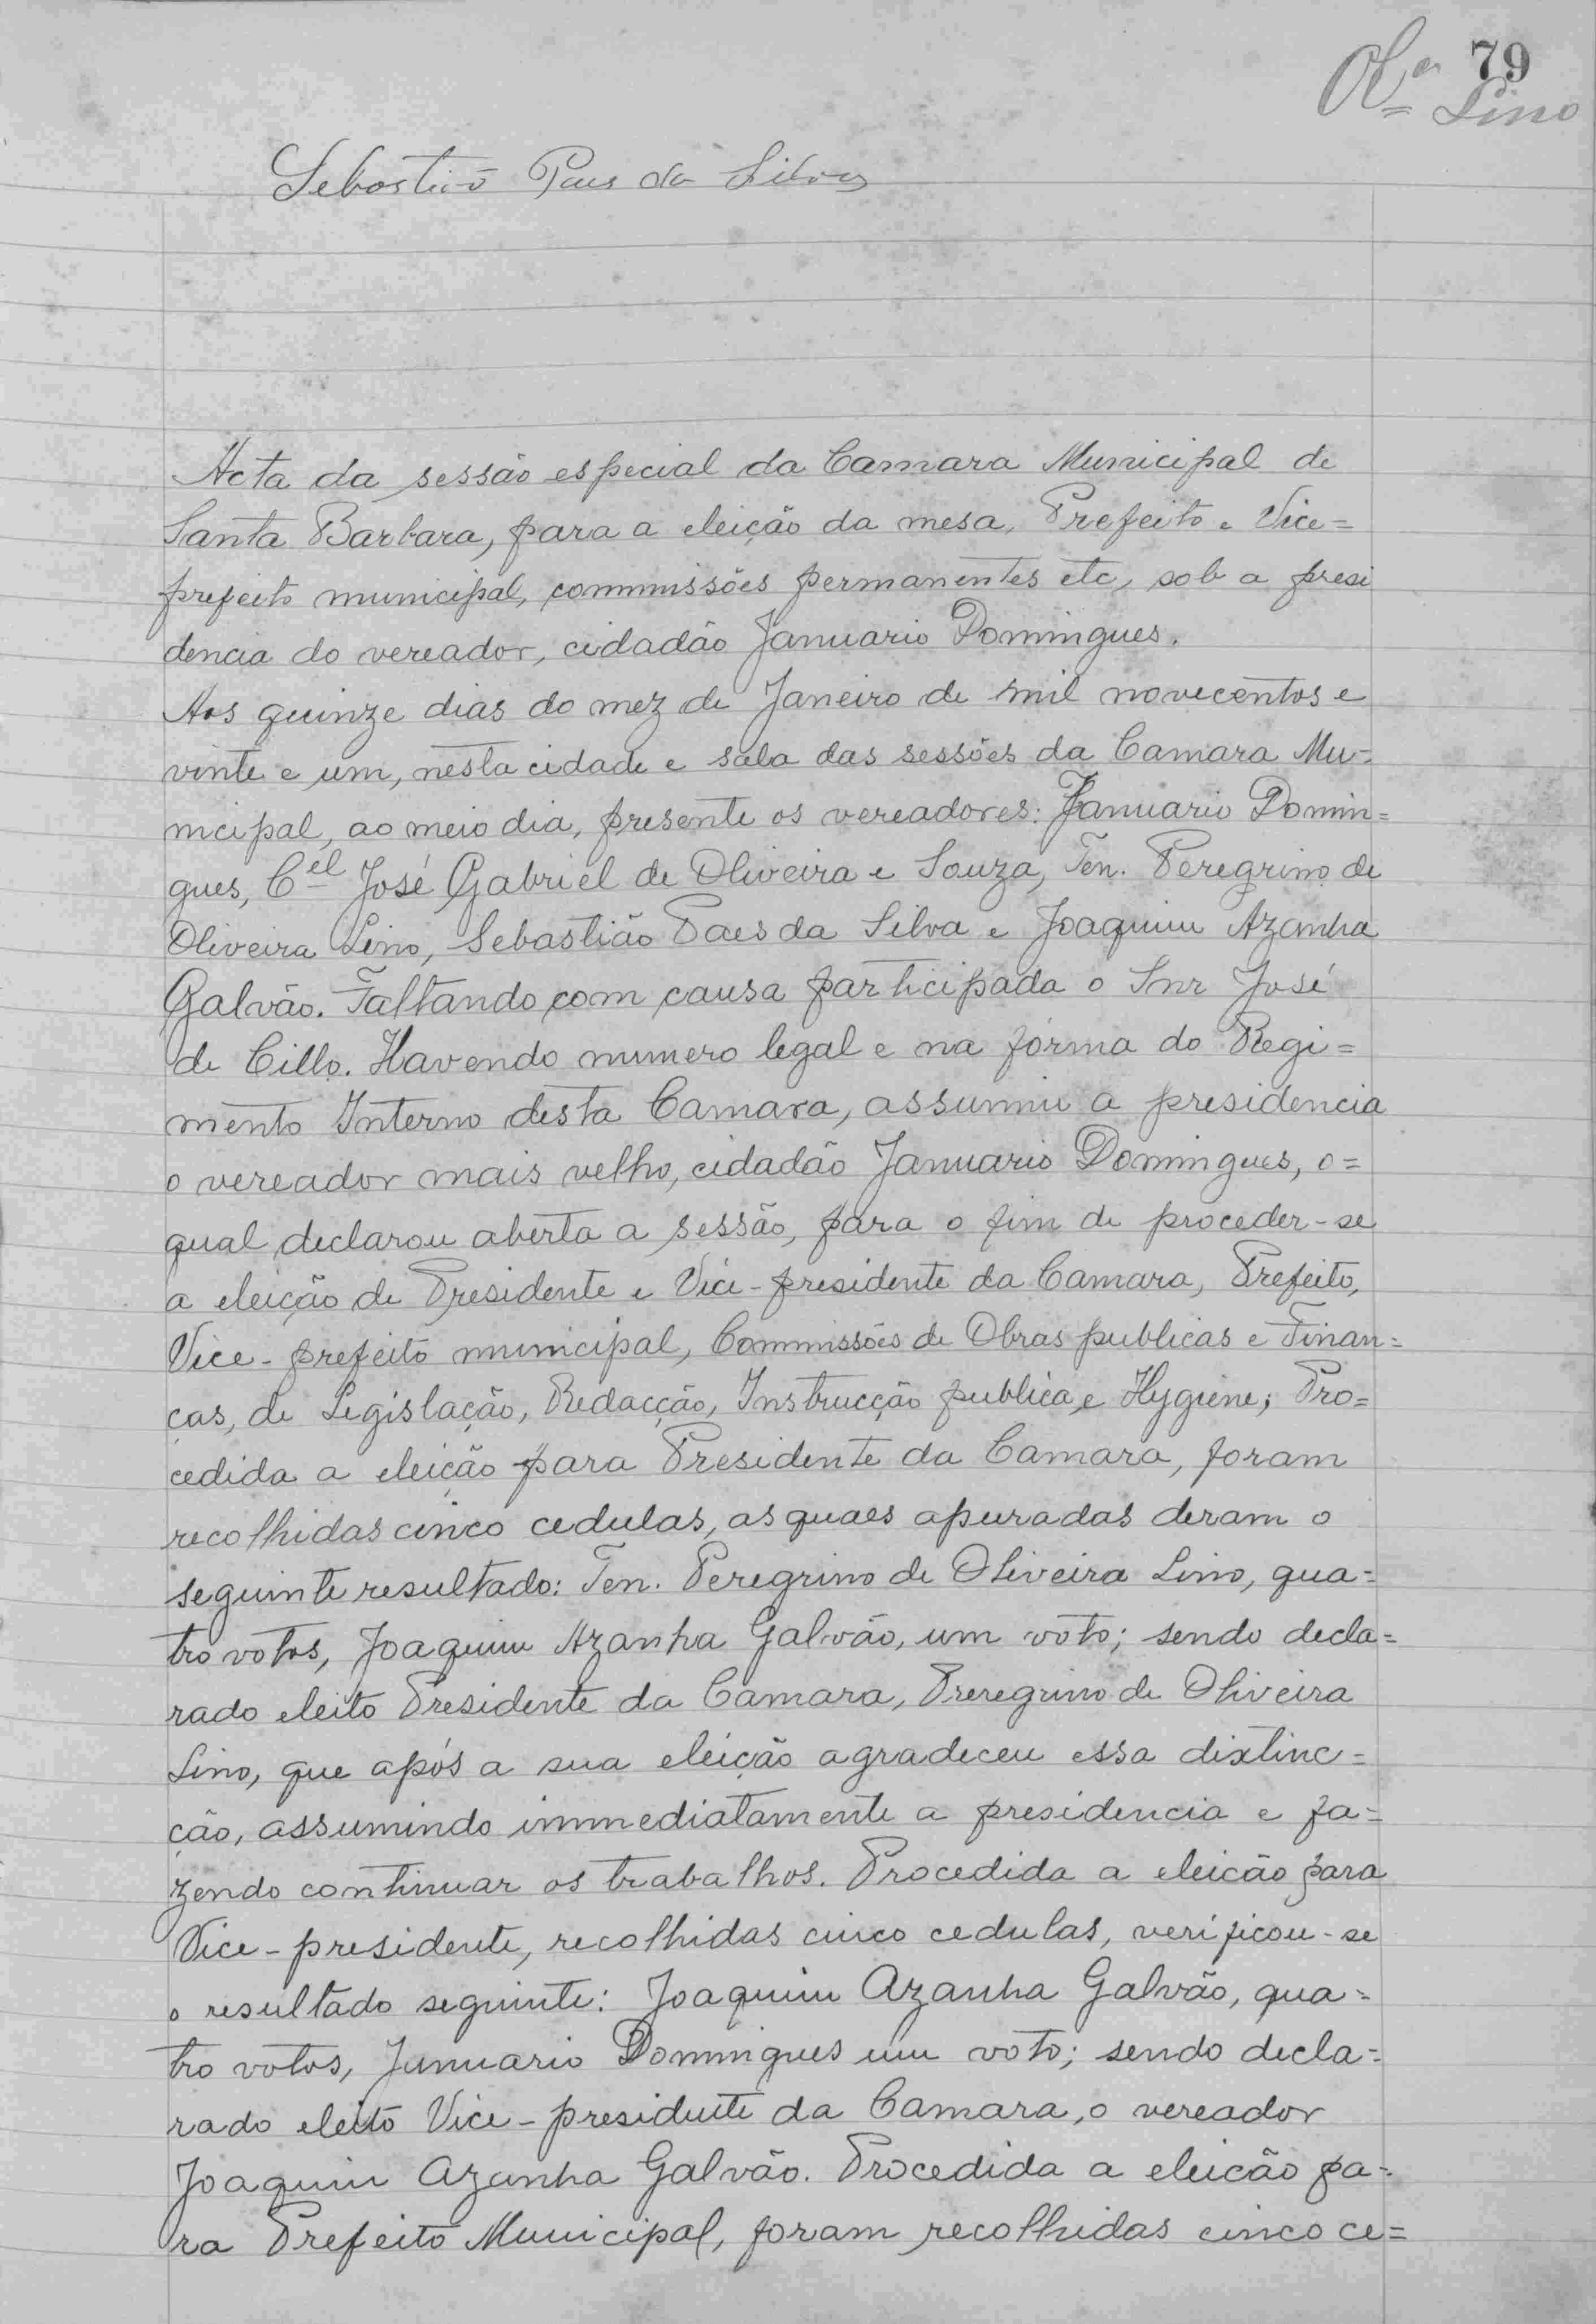 79
Olª Lino
Sebastião Paes da Silva
Acta da sessão especial da Camara Municipal de
Santa Barbara, para a eleição da mesa, Prefeito e Vice=
prefeito municipal, commissões permanentes etc, sob a presi
dencia do vereador, cidadão Januario Domingues.
Aos quinze dias do mez de Janeiro de mil novecentos e
vinte e um, nesta cidade e sala das sessões da Camara Mu=
nicipal, ao meio dia, presente os vereadores: Januario Domin=
gues, Cel José Gabriel de Oliveira e Souza, Ten. Peregrino de
Oliveira Lino, Sebastião Paes da Silva e Joaquim Azanha
Galvão. Faltando com causa participada o Snr José
de Cillo. Havendo numero legal e na fórma do Regi=
mento Interno desta Camara, assumiu a presidencia
o vereador mais velho, cidadão Januario Domingues, o=
qual declarou aberta a sessão, para o fim de proceder-se
a eleição de Presidente e Vice-presidente da Camara, Prefeito,
Vice-prefeito municipal, Commissões de Obras publicas e Finan=
ças, de Legislação, Redacção, Instrucção publica, e Hygiene; Pro=
cedida a eleição para Presidente da Camara, foram
recolhidas cinco cedulas, as quaes apuradas deram o
seguinte resultado: Ten. Peregrino de Oliveira Lino, qua=
tro votos, Joaquim Azanha Galvão, um voto; sendo decla=
rado eleito Presidente da Camara, Preregrino de Oliveira
Lino, que após a sua eleição agradeceu essa distinc=
ção, assumindo immediatamente a presidencia e fa=
zendo continuar os trabalhos. Procedida a eleicão para
Vice-presidente, recolhidas cinco cedulas, verificou-se
o resultado seguinte: Joaquim Azanha Galvão, qua=
tro votos, Januario Domingues um voto; sendo decla=
rado eleito Vice-presidente da Camara, o vereador
Joaquim Azanha Galvão. Procedida a eleicão pa=
ra Prefeito Municipal, foram recolhidas cinco ce=